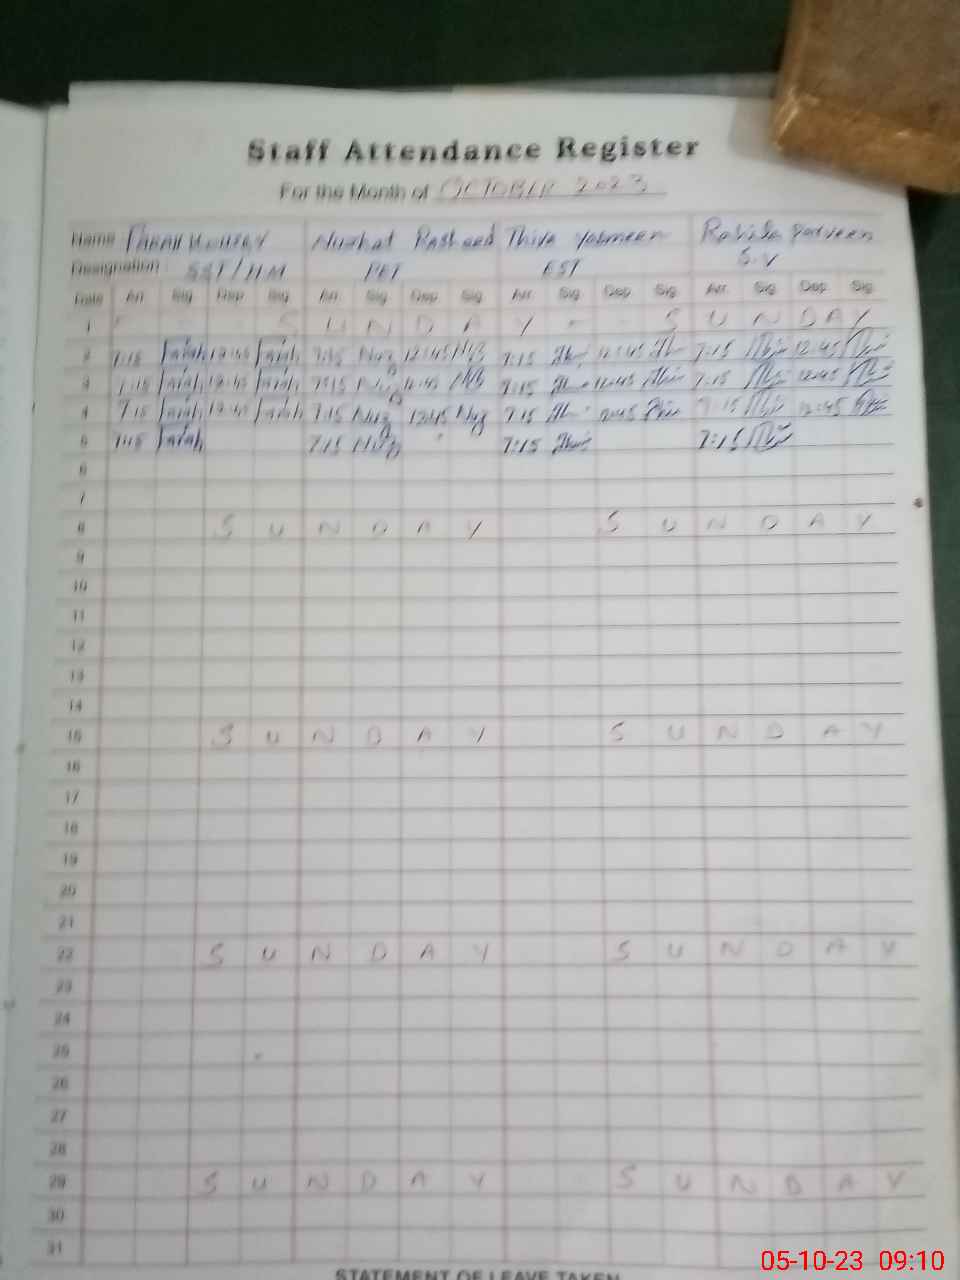 Staff Attendance Register
For the Month of OCTOBER 2023
Name Nuzhat Rasheed Yasmeen Parveen
Designation SST/HM PET EST S.V
Date Arr Sig Dep Sig Arr Sig Dep Sig Arr Sig Dep Sig Arr Sig Dep Sig
1 S U N D A Y S U N D A Y
2 7:15 Farah 12:45 Farah 7:15 Nuz 12:45 Nuz 7:15 12:45 7:15 12:45
3 7:15 Farah 12:45 Farah 7:15 Nuz 12:45 Nuz 7:15 12:45 7:15 12:45
4 7:15 Farah 12:45 Farah 7:15 Nuz 12:45 Nuz 7:15 12:45 7:15 12:45
5 Farah 7:15 Nuz 7:15 7:15
6
7
8 S U N D A Y S U N D A Y
9
10
11
12
13
14
15 S U N D A Y S U N D A Y
16
17
18
19
20
21
22 S U N D A Y S U N D A Y
23
24
25
26
27
28
29 S U N D A Y S U N D A Y
30
31
STATEMENT OF LEAVE TAKEN
05-10-23 09:10